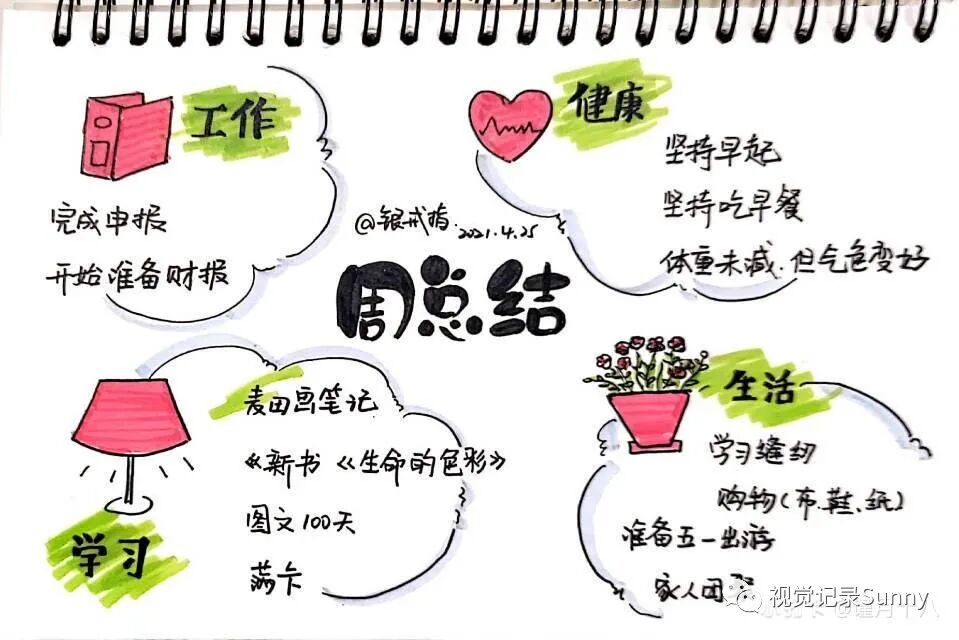 工作
完成申报
开始准备财报
健康
坚持早起
坚持吃早餐
体重未减.但气色变好
@银戒指.2021.4.25
周总结
学习
麦田画笔记
《新书《生命的色彩》
图文100天
满卡
生活
学习缝纫
购物(布.鞋、纸)
准备五一出游
家人团
视觉记录Sunny